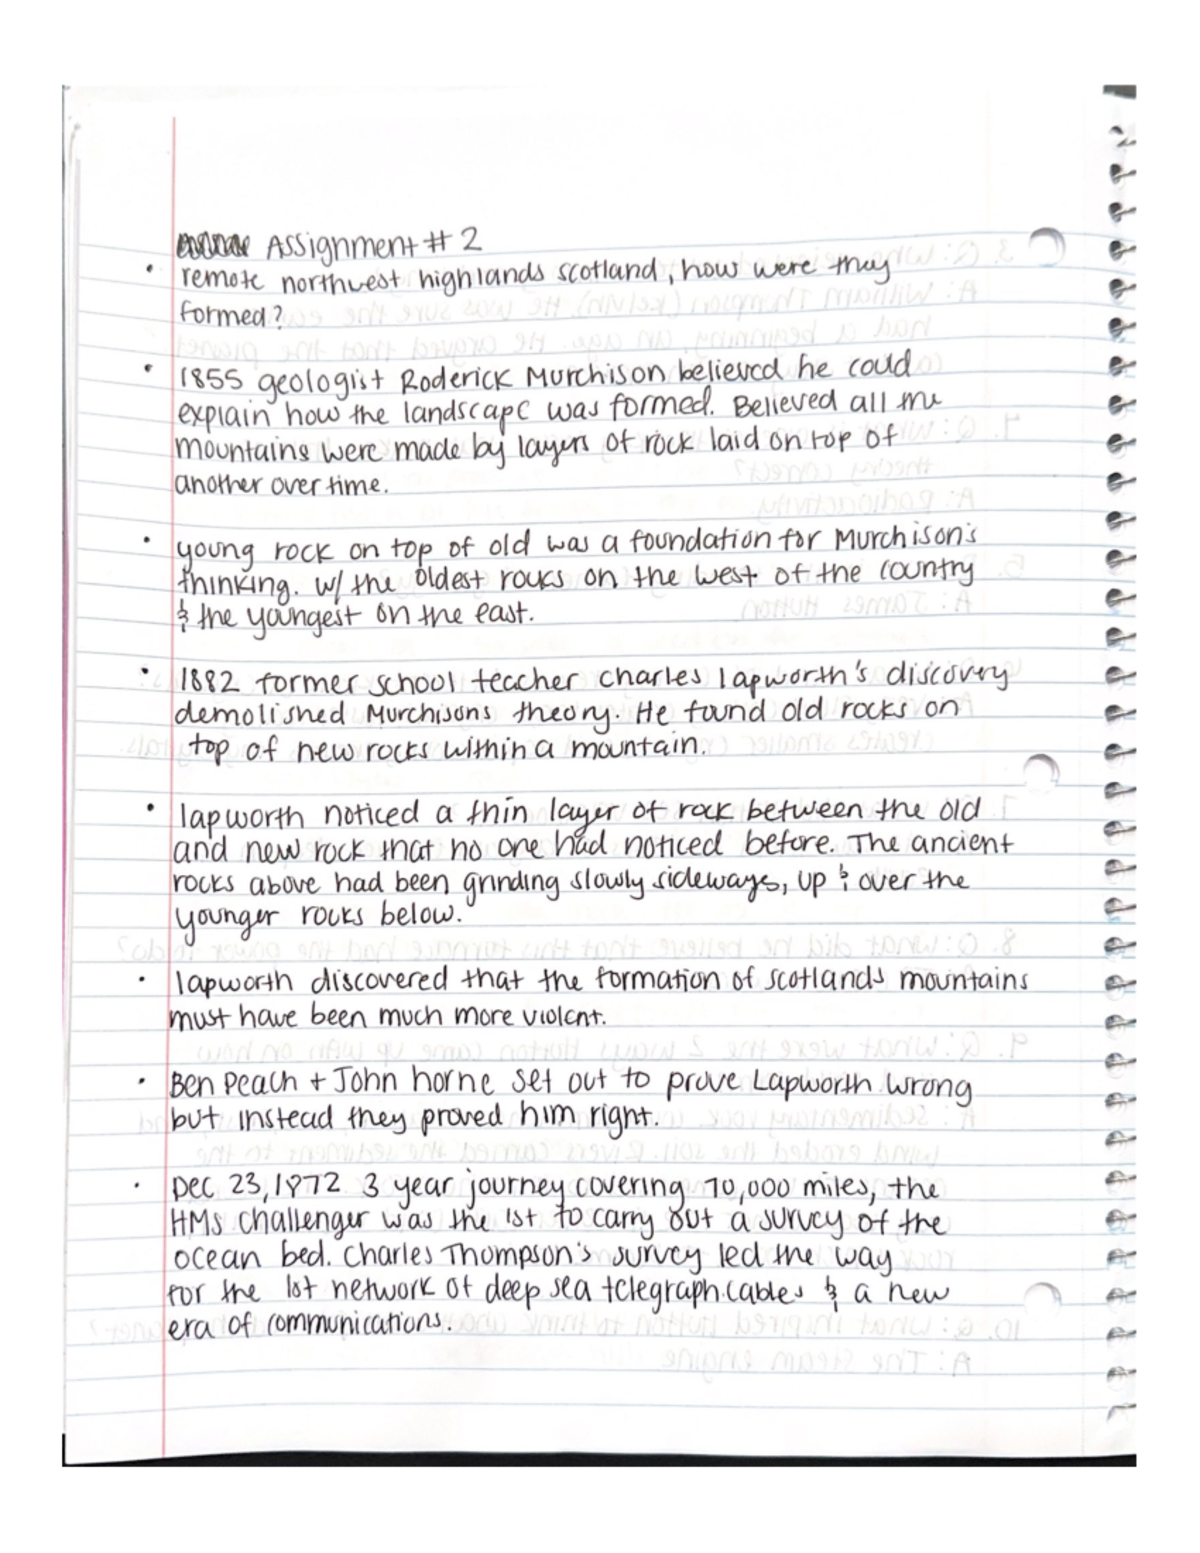 Assignment # 2
• remote northwest highlands scotland, how were they
formed?
• 1855 geologist Roderick Murchison believed he could
explain how the landscape was formed. Believed all the
mountains were made by layers of rock laid on top of
another over time.
• young rock on top of old was a foundation for Murchison's
thinking. w/ the oldest rocks on the west of the country
& the youngest on the east.
• 1882 former school teacher charles lapworth's discovery
demolished Murchisons theory. He found old rocks on
top of new rocks within a mountain.
• lapworth noticed a thin layer of rock between the old
and new rock that no one had noticed before. The ancient
rocks above had been grinding slowly sideways, up & over the
younger rocks below.
• lapworth discovered that the formation of scotlands mountains
must have been much more violent.
• Ben Peach + John horne set out to prove Lapworth wrong
but instead they proved him right.
• Dec 23, 1872 3 year journey covering 70,000 miles, the
HMS challenger was the 1st to carry out a survey of the
ocean bed. Charles Thompson's survey led the way
for the 1st network of deep sea telegraph cables & a new
era of communications.